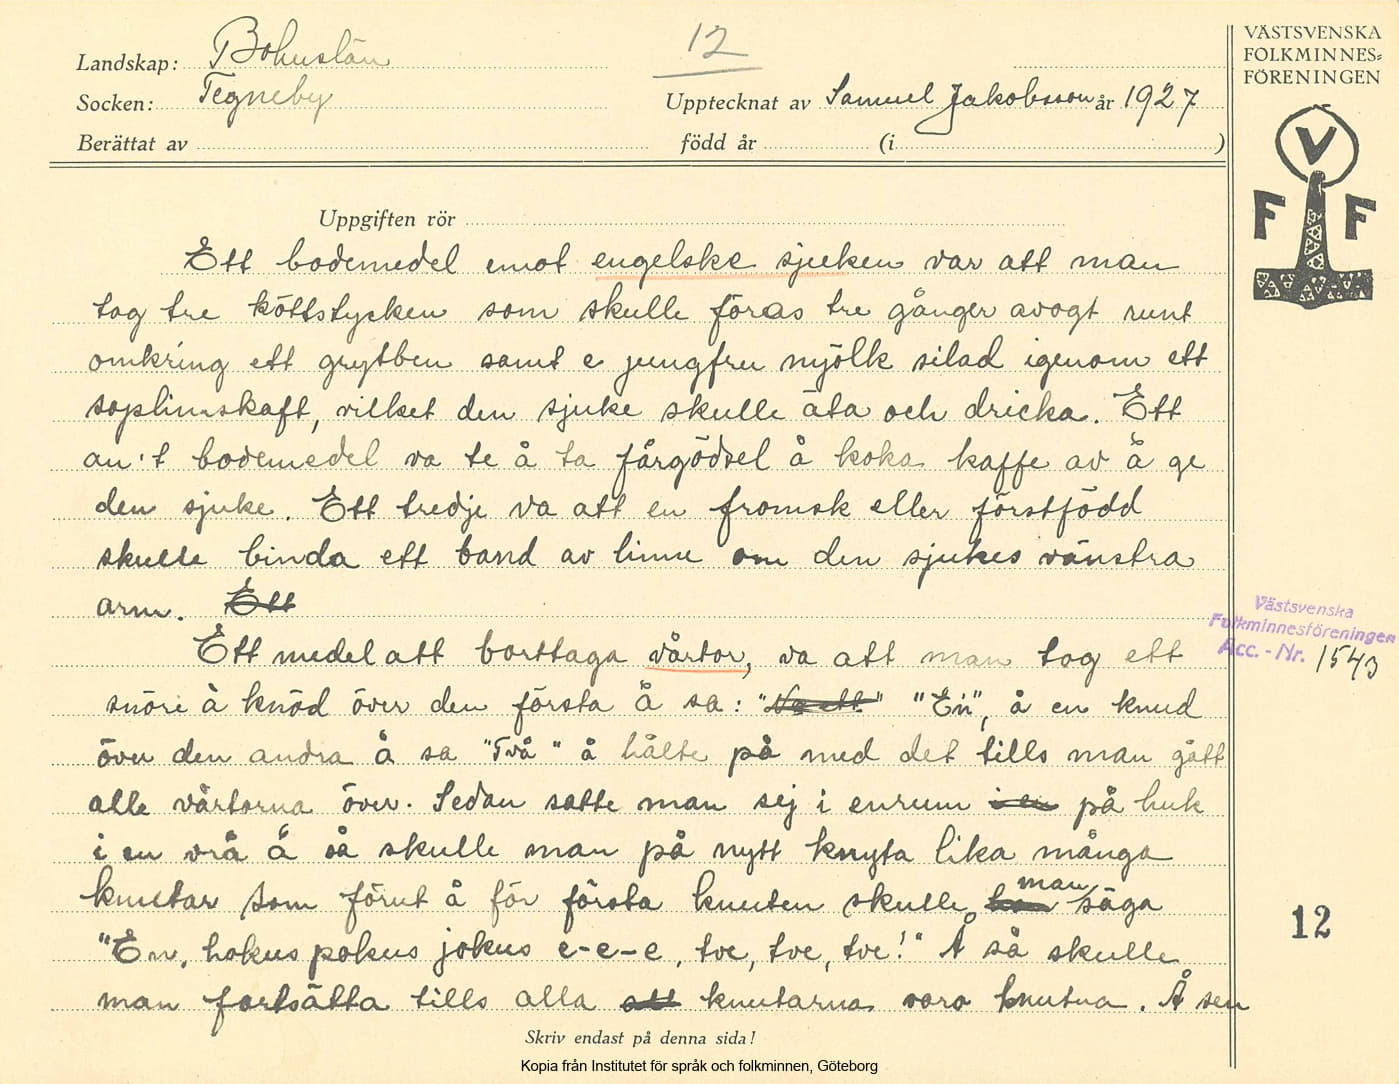 Landskap: Bohuslän
12
Socken: Tegneby
Upptecknat av Samuel Jakobsson år 1927
Berättat av
född år (i )
VÄSTSVENSKA
FOLKMINNES=
FÖRENINGEN
V
F F
Uppgiften rör
Ett bodemedel emot engelske sjuken var att man
tog tre köttstycken som skulle föras tre gånger avogt runt
omkring ett grytben samt e jungfru mjölk silad igenom ett
soplimskaft, vilket den sjuke skulle äta och dricka. Ett
an't bodemedel va te å ta fårgödsel å koka kaffe av å ge
den sjuke. Ett tredje va att en fromsk eller förstfödd
skulle binda ett band av linne om den sjukes vänstra
arm. Ett
Ett medel att borttaga vårtor, va att man tog ett
snöre å knöd över den första å sa: "Na ett" "En", å en knud
över den andra å sa "Två" å hålte på med det tills man gått
alle vårtorna över. Sedan satte man sej i enrum i en på huk
i en vrå å så skulle man på nytt knyta lika många
knutar som förut å för första knuten skulle man säga
"En, hokus pokus jokus e-e-e, tve, tve, tve!" Å så skulle
man fortsätta tills alla att knutarna voro knutna. Å sen
Västsvenska
Folkminnesföreningen
Acc. - Nr. 1543
12
Skriv endast på denna sida!
Kopia från Institutet för språk och folkminnen, Göteborg